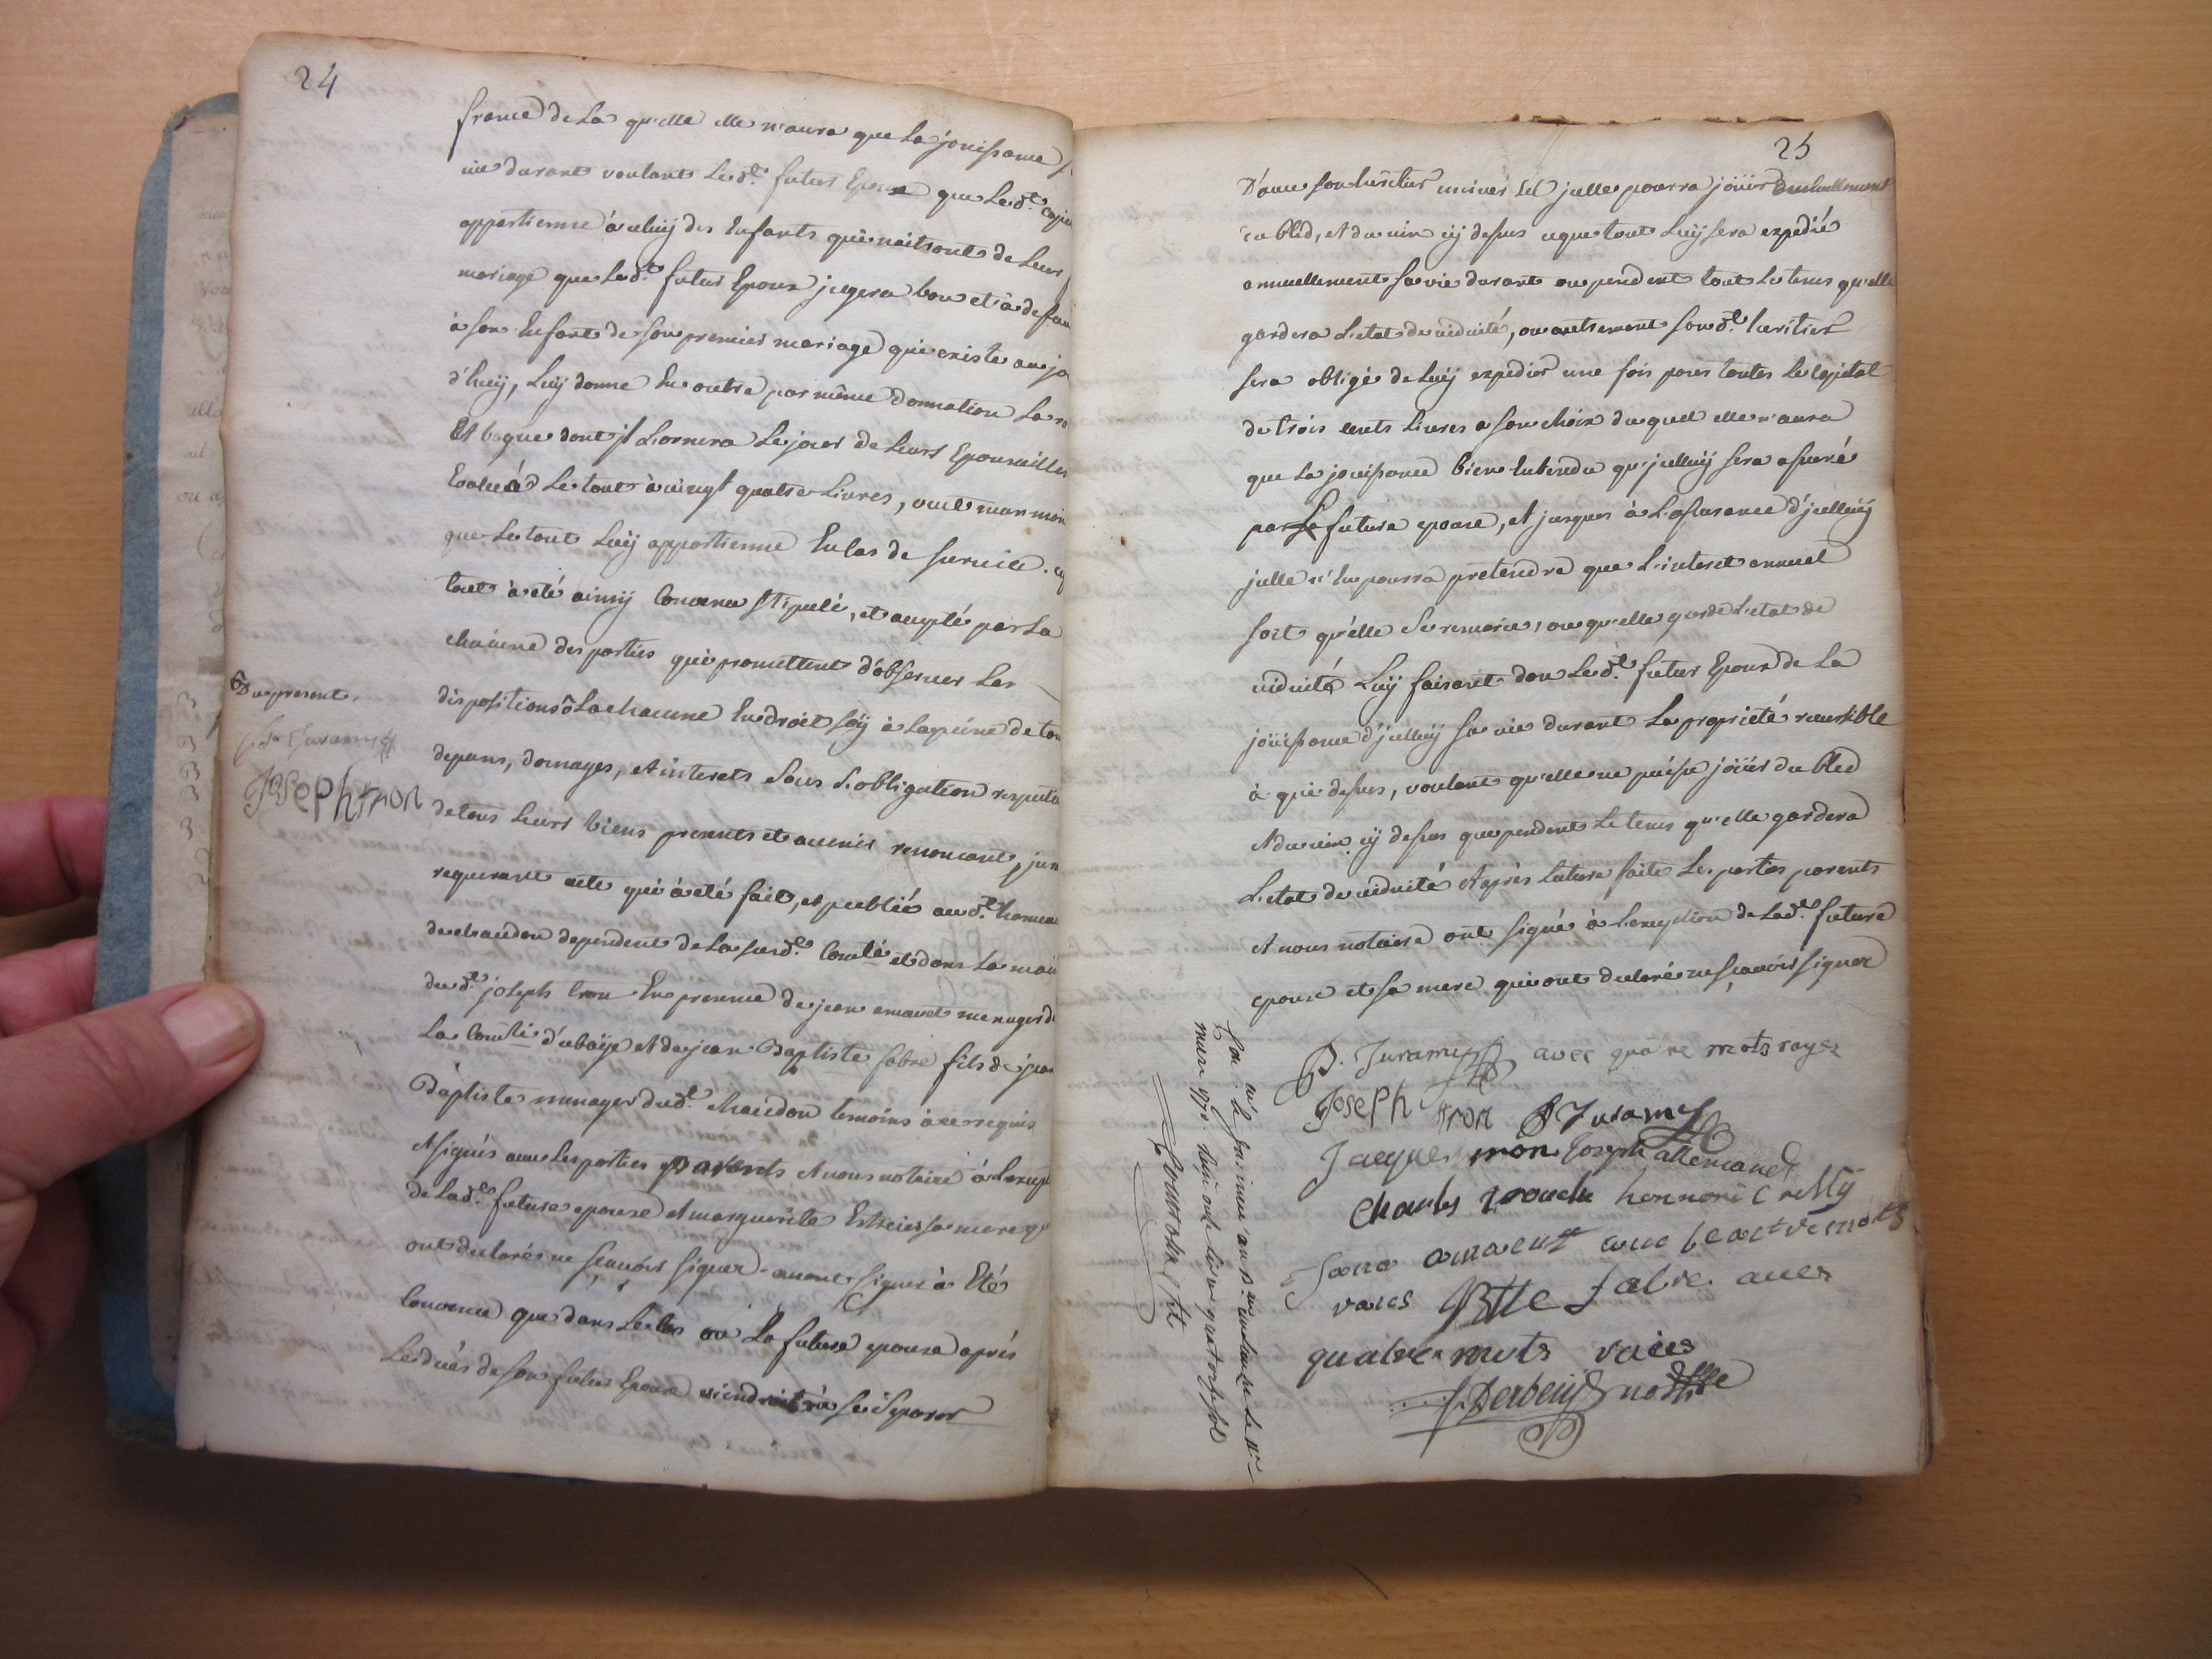 24
france de La qu'elle elle n'aura que La jouissance
vie durant voulant Led.t futur Epoux que Led.t
appartienne à celuÿ des Enfants qui naitront de Leur
mariage que Led.t futur Epoux jugera bon et à defau
à son Enfant de son premier mariage qui existe aujo
d'huÿ, Luÿ donne En outre par même Donnation La
Et bague dont jl L'ornera Le jour de Leurs Epousailles
Evalués Le tout à vingt quatre Livres, veut
que Le tout Luÿ appartienne En cas de survie.
tout à eté ainsÿ Convenu Stipulé, et accepté par La
chacune des parties qui promettent d'observer Les
dispositions La chacune En droit soÿ à La peine de tou
depans, domages, et interets Sous L'obligation
de tous Leurs biens presents et avenir renoncant, jur
requerant acte qui à eté fait, et publié aud.t hamea
de chaudon dependent de La susd.e Comté et dans La mai
dud.t joseph tron En presence de jean amavet menager d
La Comté d'ubaÿe et de jean Baptiste fabre fils de jean
Baptiste menager dud.t chaudon temoins à ce requis
et signés avec Les parties parents et nous notaire à L'except
de Lad.e future epouse et marguerite sa mere q
ont declarés ne sçavoir signer avant signer à Eté
Convenu que dans Le Cas où La future epouse après
Le décés de son futur Epoux viendroit à se Separer
Du present.
Joseph tron
25
D'avec son heritier jcelle pourra joüir
du bled, et du vin cÿ dessus ce que tout Luÿ sera expedié
annuellement sa vie durant ou pendent tout Le tems qu'elle
gardera L'etat de viduité, ou autrement sond.t heritier
sera obligé de Luÿ expedier une fois pour toutes Le Capital
de trois cents Livres a son choix du quel elle n'aura
que La jouissance bien Entendu qu'jcelluÿ sera assuré
par La future epouse, et jusques à L'assurance d'jcelluÿ
jcelle n'En pourra pretendre que L'interet annuel
soit qu'elle Se remarie, ou qu'elle garde L'etat de
viduité Luÿ faisant don Led.t futur Epoux de La
joüissance d'jcelluÿ sa vie durant La propriété reversible
à qui dessus, voulant qu'elle ne puisse joüir du bled
et du vin cÿ dessus que pendent Le tems qu'elle gardera
L'etat de viduité et après Lecture faite Les parties parents
et nous notaire ont signé à L'exception de Lad.e future
epouse et sa mere qui ont declaré ne sçavoir signer
avec quatre mots rayez
Joseph tron
Jacques tron Joseph allemand
Charles honnoré
amavet avec mots
raies Btte fabre avec
quatre mots raiés
Derbeiÿ no.re